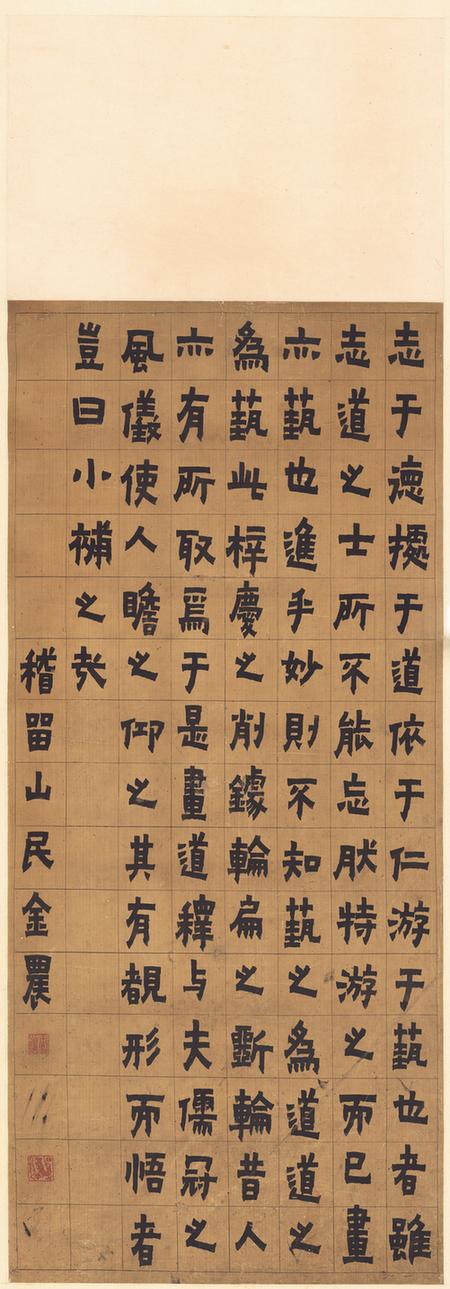 志于德據于道依于仁游于藝也者雖
志道之士所不能忘肰特游之而已畫
亦藝也進乎妙則不知藝之爲道道之
爲藝此梓慶之削鐻輪扁之斲輪昔人
亦有所取焉于是畫道釋与夫儒冠之
風儀使人瞻之仰之其有覩形而悟者
豈曰小補之哉
稽留山民金農